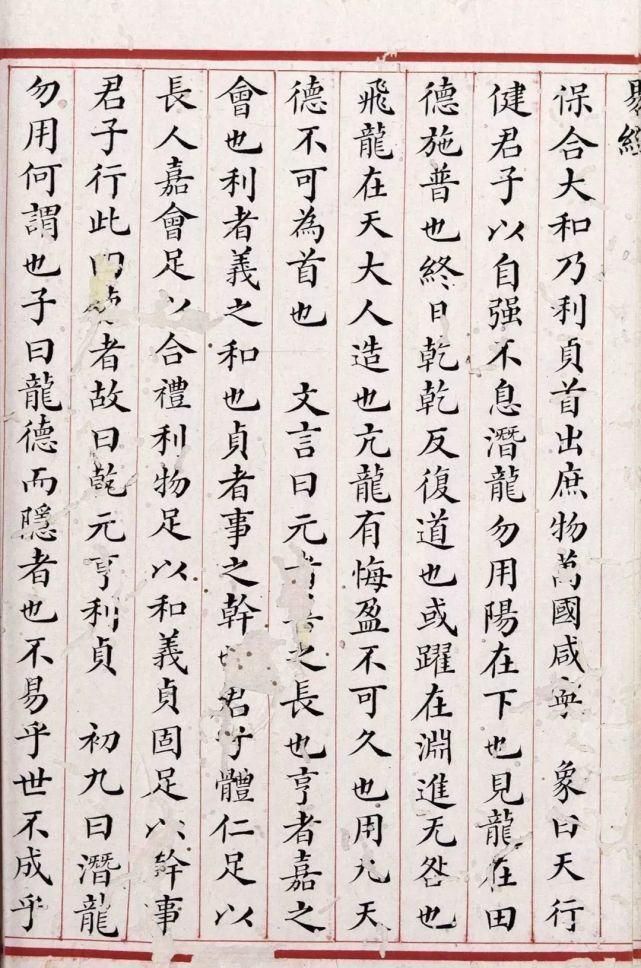 易經
保合大和乃利貞首出庶物萬國咸寧　象曰天行
健君子以自强不息潛龍勿用陽在下也見龍在田
德施普也終日乾乾反復道也或躍在淵進无咎也
飛龍在天大人造也亢龍有悔盈不可久也用九天
德不可為首也　文言曰元者之長也亨者嘉之
會也利者義之和也貞者事之幹也君子體仁足以
長人嘉會足以合禮利物足以和義貞固足以幹事
君子行此四德者故曰乾元亨利貞　初九曰潛龍
勿用何謂也子曰龍德而隱者也不易乎世不成乎